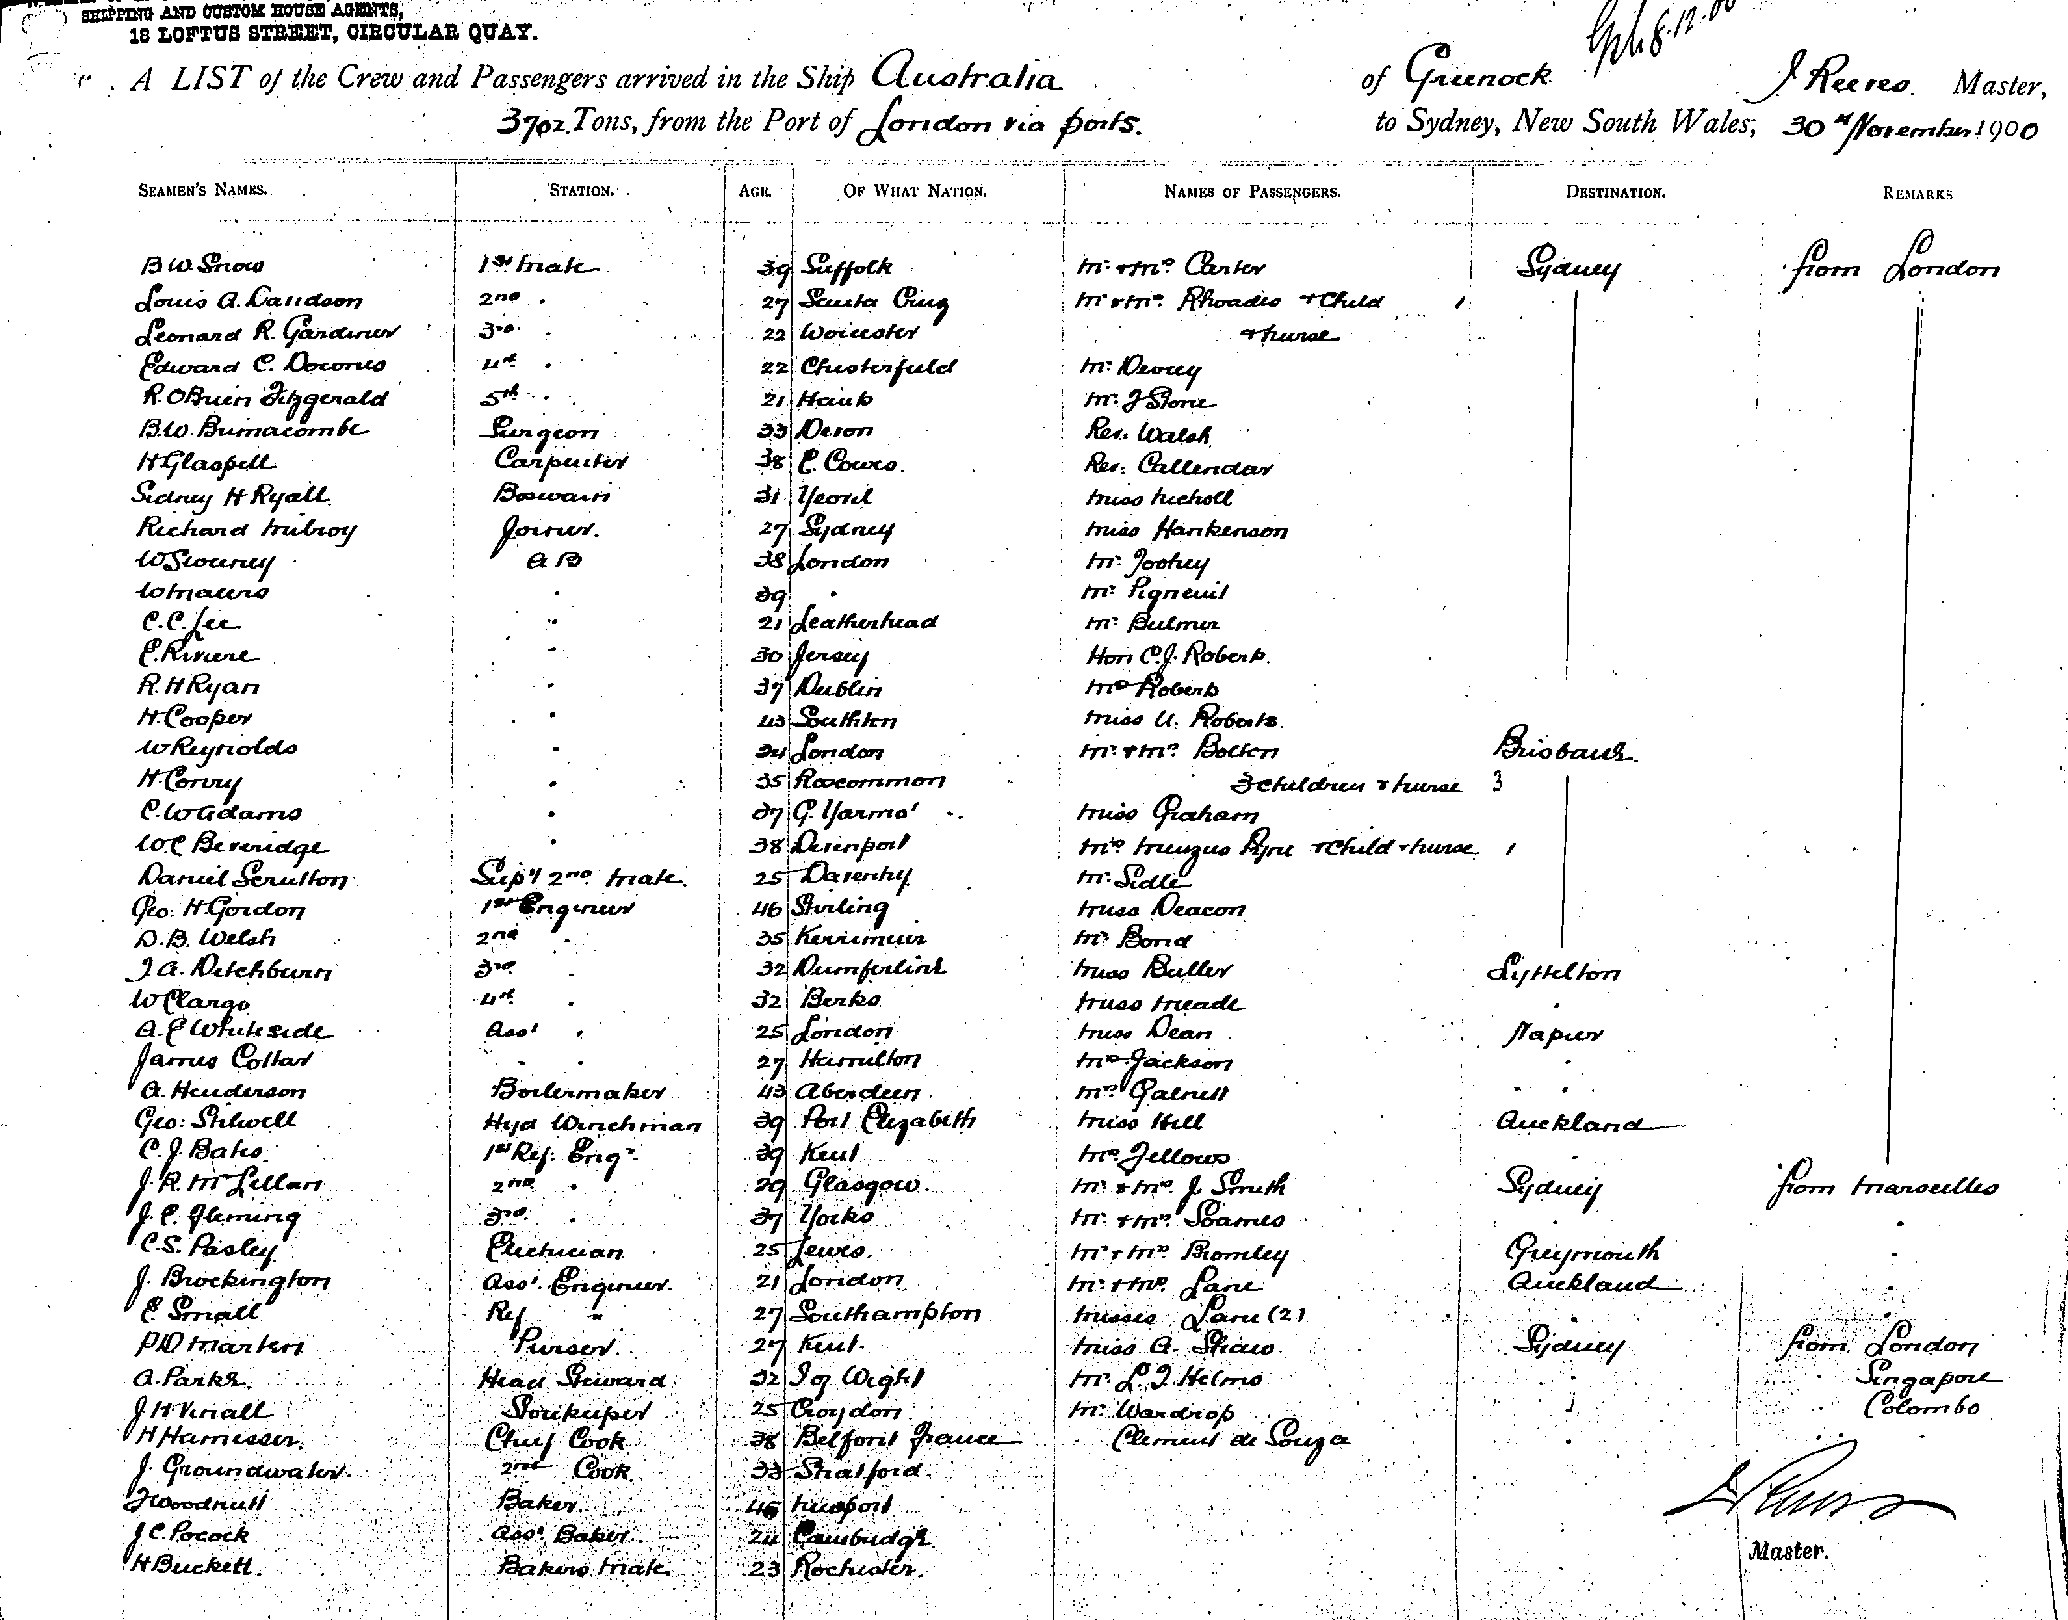 SHIPPING AND CUSTOM HOUSE AGENTS,
18 LOFTUS STREET, CIRCULAR QUAY.
A LIST of the Crew and Passengers arrived in the Ship Australia of Greenock J Reeves. Master,
3702. Tons, from the Port of London via ports. to Sydney, New South Wales, 30th November 1900
SEAMEN'S NAMES. STATION. AGE. OF WHAT NATION. NAMES OF PASSENGERS. DESTINATION. REMARKS
B W Snow 1st Mate 39 Suffolk Mr & Mrs Carter Sydney from London
Louis A. Davidson 2nd . 27 Santa Cruz Mr & Mrs Rhoades & Child 1
Leonard R. Gardiner 3rd . 22 Worcester & nurse
Edward C. Downes 4th . 22 Chesterfield Mr
R. O'Brien Fitzgerald 5th . 21 Hants Mr J Stone
B. W. Surgeon 33 Devon Rev. Walsh
H Glaspell Carpenter 38 E. Cowes. Rev. Callendar
Sidney H Ryall Boswain 31 Yeovil Miss Nicholl
Richard Milroy Joiner. 27 Sydney Miss Hankenson
W A B 38 London Mr Toohey
W . 39 . Mr
C. C. Lee " 21 Leatherhead Mr Bulmer
E. Riviere " 30 Jersey Hon C. J. Roberts.
R. H Ryan . 37 Dublin Mrs Roberts
H. Cooper . 43 Southton Miss U. Roberts.
W Reynolds . 34 London Mr & Mrs Bolton Brisbane.
H Convy . 35 Roscommon 3 children & nurse 3
C. W Adams . 37 G. Yarmo' Miss Graham
W. C Beveridge . 38 Devenport Mrs Menzies Pyne & Child & nurse 1
Daniel Scrutton Supy 2nd Mate. 25 Daventry Mr. Sidle
Geo: H. Gordon 1st Engineer 46 Stirling Miss Deacon
D. B. Welsh 2nd . 35 Kerriemuir Mr Bond
J A. Ditchburn 3rd . 32 Dumferline Miss Buller Lyttelton
W Clargo 4th . 32 Berks Miss Meade .
A. E Whiteside Asst . 25 London Miss Dean Napier
James Collar . . 27 Hamilton Mrs Jackson .
A. Henderson Boilermaker 43 Aberdeen. Mrs . .
Geo: Stilwell Hyd Winchman 39 Port Elizabeth Miss Hill Auckland
C. J. Bates. 1st Ref: Engr. 39 Kent Mrs Fellows .
J. R. McLellan 2nd . 29 Glasgow. Mr & Mrs J. Smith Sydney from Marseilles
J. E. Fleming 3rd . 37 Yorks Mr & Mrs Soames . .
C. S. Pasley Electrician 25 Lewes. Mr & Mrs Bromley Greymouth .
J. Brockington Asst. Engineer. 21 London Mr & Mrs Lane Auckland .
E Small Ref " 27 Southampton Misses Lane (2) . .
P D Marten Purser. 27 Kent. Miss A. Shaw. Sydney from London
A. Parks. Head Steward 32 I of Wight Mr. L. J. Helms . Singapore
J H Vinall Storekeeper 25 Croydon Mr Wardrop . Colombo
H Chief Cook 38 Belfort France Clement de Souza .
J. Groundwater. 2nd Cook 33 Stratford.
J Woodnutt Baker. 45 Newport
J. C. Pocock Asst. Baker 24 Cambridge
H Buckett. Bakers Mate. 23 Rochester.
Master.